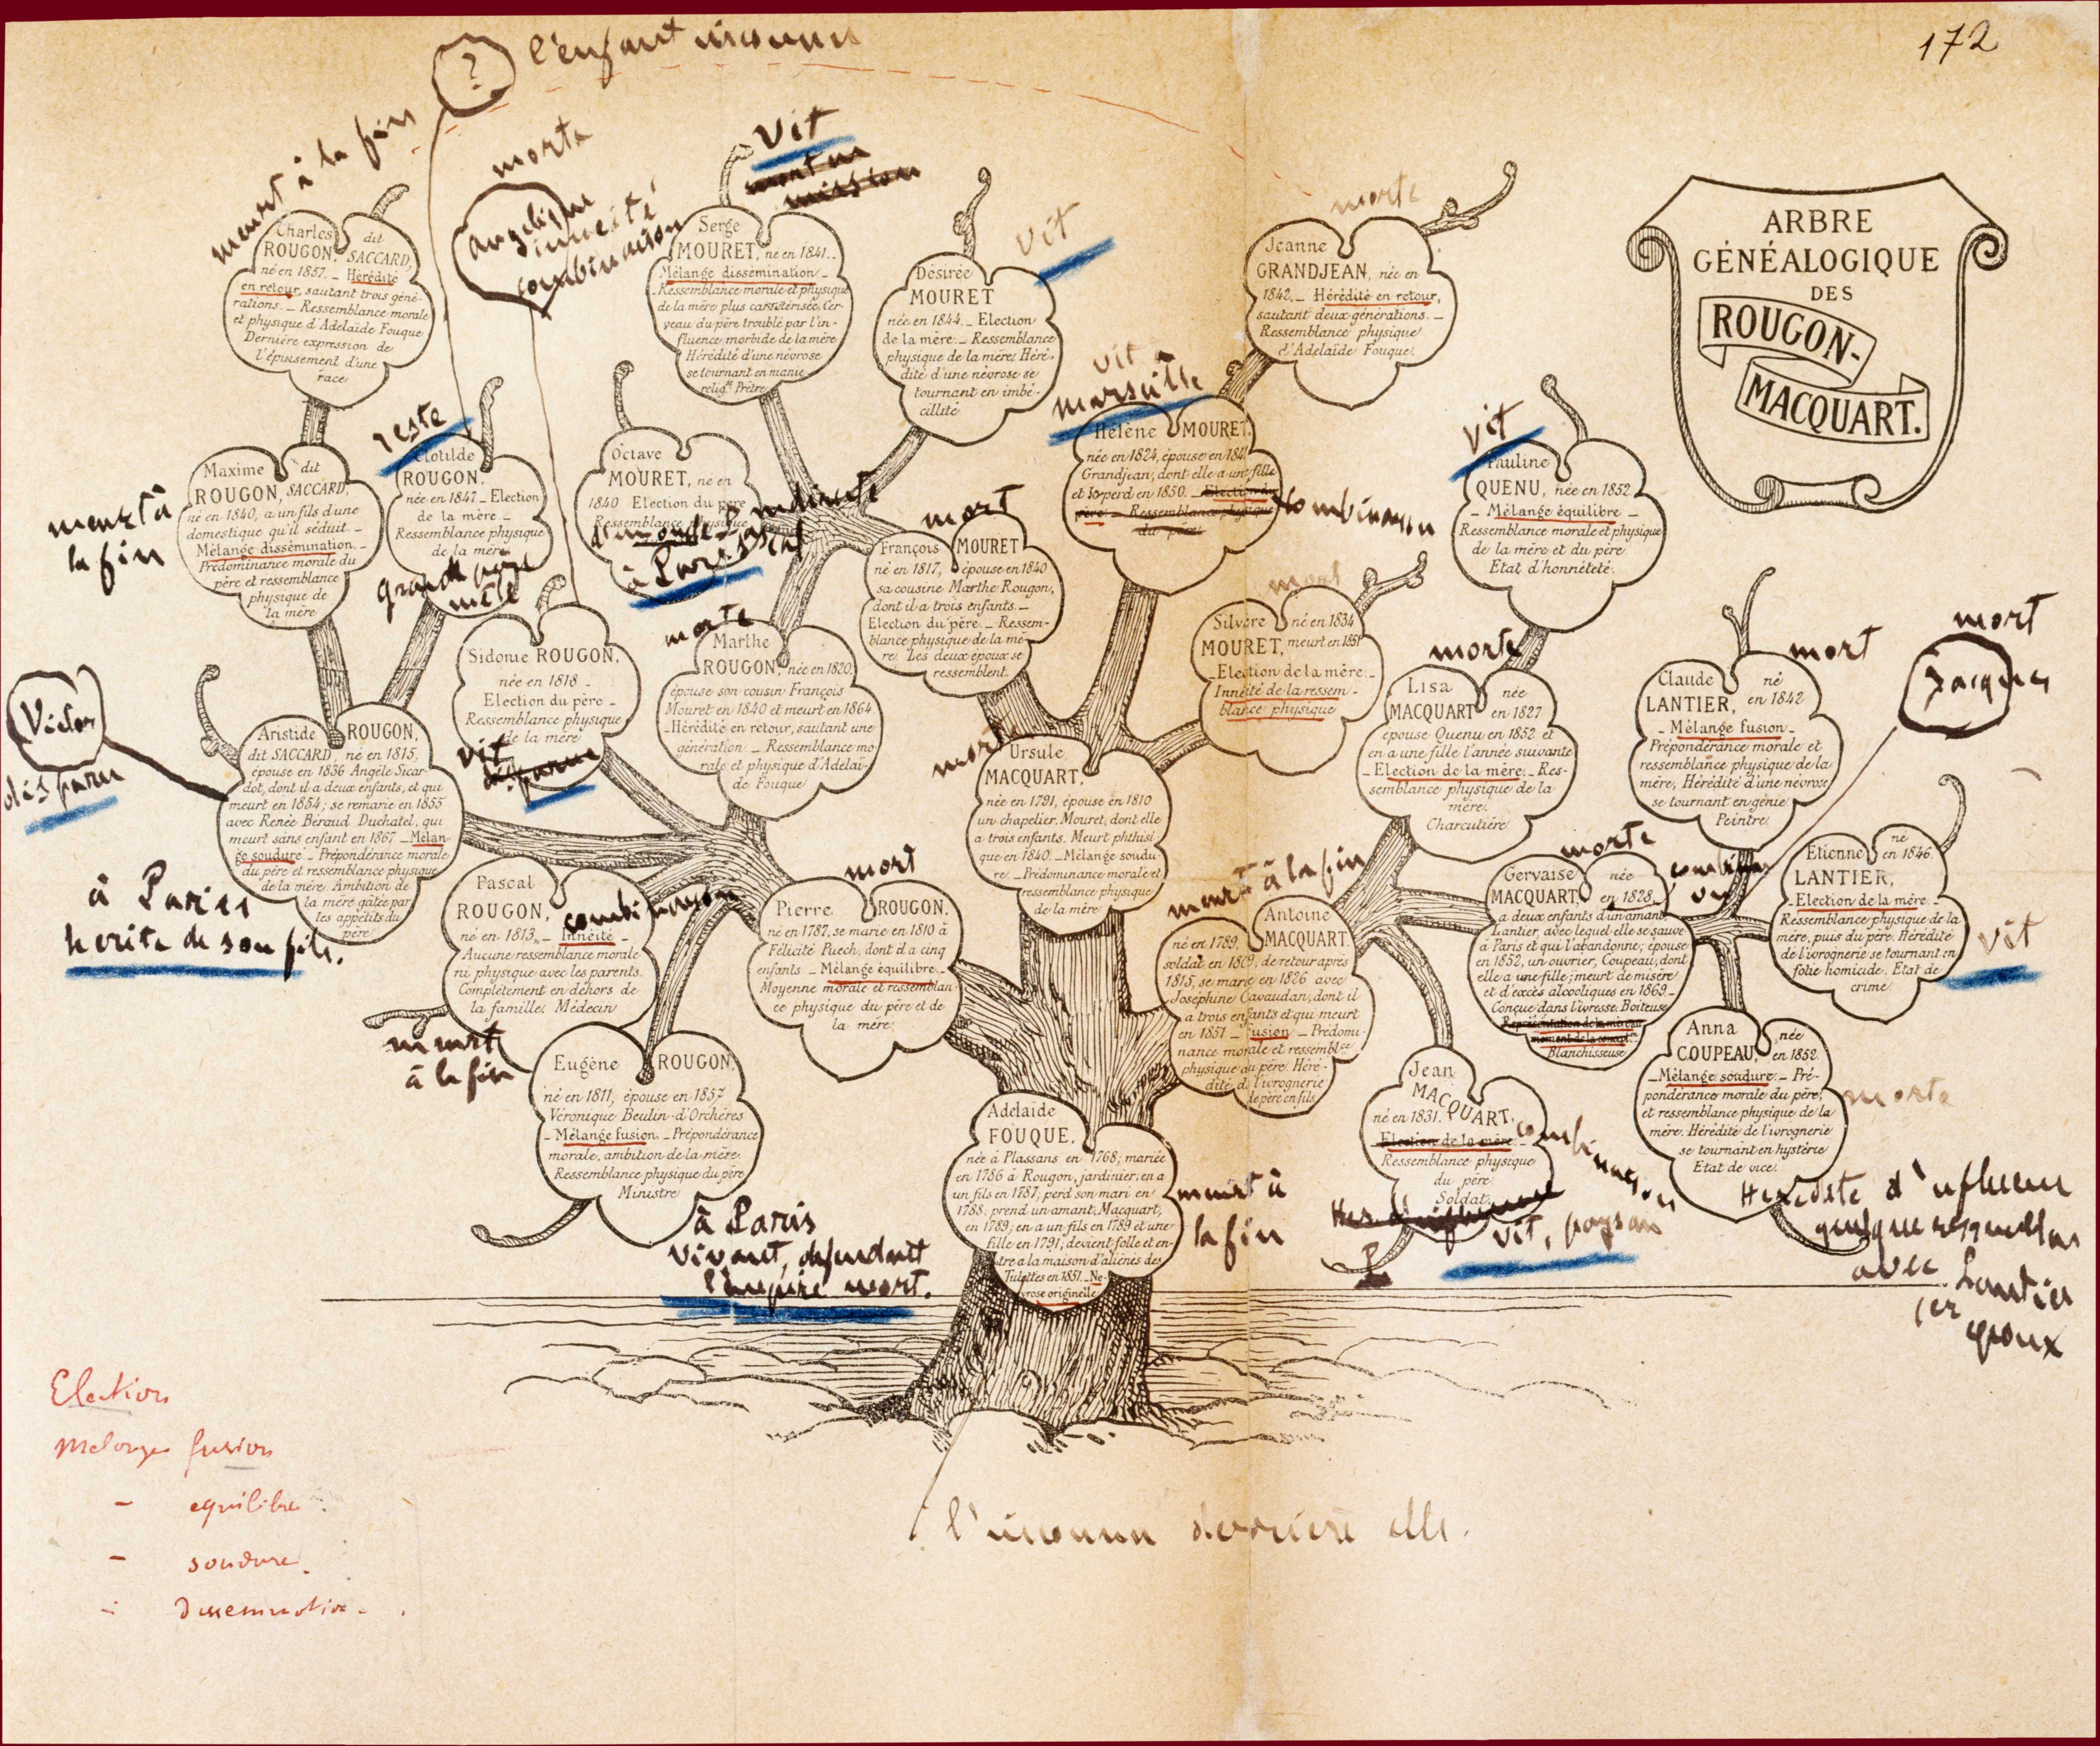 172
? l'enfant inconnu
ARBRE
GÉNÉALOGIQUE
DES
ROUGON-
MACQUART.
meurt à la fin
Charles dit
ROUGON, SACCARD,
né en 1857. _ Hérédité
en retour, sautant trois géné-
rations. _ Ressemblance morale
et physique d'Adelaïde Fouque
Dernière expression de
l'épuisement d'une
race
morte
Angélique
innéité
combinaison
Vit
mort en
mission
Serge
MOURET, né en 1841._
Mélange dissémination _
Ressemblance morale et physique
de la mère plus caractérisée. Cer-
veau du père troublé par l'in-
fluence morbide de la mère
Hérédité d'une névrose
se tournant en manie
relig.se Prêtre
vit
Désirée
MOURET
née en 1844._ Election
de la mère._ Ressemblance
physique de la mère. Héré-
dité d'une névrose se
tournant en imbé-
cillité
morte
Jeanne
GRANDJEAN, née en
1842._ Hérédité en retour,
sautant deux générations. _
Ressemblance physique
d'Adelaïde Fouque.
meurt à
la fin
Maxime dit
ROUGON, SACCARD,
né en 1840, a un fils d'une
domestique qu'il séduit. _
Mélange dissémination. _
Prédominance morale du
père et ressemblance
physique de
la mère
reste
Clotilde
ROUGON.
née en 1847_ Election
de la mère _
Ressemblance physique
de la mère
Octave
MOURET, né en
1840 Election du père
Ressemblance physique
à Paris
vit
Marseille
Hélène MOURET.
née en 1824, épouse en 1841
Grandjean, dont elle a une fille
et le perd en 1850. _ Election du
père _ Ressemblance physique
du père
combinaison
vit
Pauline
QUENU, née en 1852
_ Mélange équilibre _
Ressemblance morale et physique
de la mère et du père
Etat d'honnêteté.
mort
François MOURET
né en 1817, épouse en 1840
sa cousine Marthe Rougon,
dont il a trois enfants. _
Election du père. _ Ressem-
blance physique de la mè-
re. Les deux époux se
ressemblent.
mort
Silvère né en 1834
MOURET, meurt en 1851
Election de la mère. _
Innéité de la ressem-
blance physique
Sidonie ROUGON,
née en 1818 _
Election du père _
Ressemblance physique
de la mère
vit
disparue
morte
Marthe
ROUGON, née en 1820,
épouse son cousin François
Mouret en 1840 et meurt en 1864
_Hérédité en retour, sautant une
génération _ Ressemblance mo-
rale et physique d'Adelaï-
de Fouque
morte
Lisa née
MACQUART en 1827
épouse Quenu en 1852 et
en a une fille l'année suivante
_ Election de la mère. _ Res-
semblance physique de la
mère.
Charcutière
mort
Claude né
LANTIER, en 1842
_ Mélange fusion _
Prépondérance morale et
ressemblance physique de la
mère, Hérédité d'une névrose
se tournant en génie
Peintre.
mort
Jacques
Victor
disparu
Aristide ROUGON,
dit SACCARD, né en 1815,
épouse en 1836 Angèle Sicar-
dot, dont il a deux enfants, et qui
meurt en 1854; se remarie en 1855
avec Renée Béraud Duchatel, qui
meurt sans enfant en 1867 _ Mélan-
ge soudure _ Prépondérance morale
du père et ressemblance physique
de la mère. Ambition de
la mère gâtée par
les appétits du
père.
à Paris
hérite de son fils.
mort
Ursule
MACQUART,
née en 1791, épouse en 1810
un chapelier, Mouret, dont elle
a trois enfants. Meurt phthisi
que en 1840. _ Mélange soudu-
re _ Prédominance morale et
ressemblance physique
de la mère
Pascal
ROUGON,
né en 1813,_ Innéité _
Aucune ressemblance morale
ni physique avec les parents.
Complètement en dehors de
la famille. Médecin
combinaison
meurt
à la fin
mort
Pierre ROUGON.
né en 1787, se marie en 1810 à
Félicité Puech, dont il a cinq
enfants _ Mélange équilibre._
Moyenne morale et ressemblan
ce physique du père et de
la mère.
meurt à la fin
Antoine
MACQUART.
né en 1789,
soldat en 1809, de retour après
1815, se marie en 1826 avec
Joséphine Gavaudan, dont il
a trois enfants et qui meurt
en 1851 _ Fusion _ Prédomi-
nance morale et ressembl.ce
physique du père. Héré-
dité d'ivrognerie
de père en fils
morte
Gervaise née
MACQUART, en 1828,
a deux enfants d'un amant,
Lantier, avec lequel elle se sauve
à Paris et qui l'abandonne; épouse
en 1852, un ouvrier, Coupeau, dont
elle a une fille; meurt de misère
et d'excès alcooliques en 1869_
Conçue dans l'ivresse. Boiteuse
Blanchisseuse
Etienne né
en 1846.
LANTIER,
Election de la mère _
Ressemblance physique de la
mère, puis du père. Hérédité
de l'ivrognerie se tournant en
folie homicide. Etat de
crime.
vit
Eugène ROUGON,
né en 1811, épouse en 1857
Véronique Beulin-d'Orchères
_ Mélange fusion. _ Prépondérance
morale, ambition de la mère.
Ressemblance physique du père
Ministre
à Paris
vivant, défendant
l'empire mort.
Adelaïde
FOUQUE,
née à Plassans en 1768; mariée
en 1786 à Rougon, jardinier; en a
un fils en 1787, perd son mari en
1788; prend un amant, Macquart,
en 1789; en a un fils en 1789 et une
fille en 1791; devient folle et en-
tre à la maison d'aliénés des
Tulettes en 1851. _ Né-
vrose originelle
meurt à
la fin
Jean
MACQUART,
né en 1831.
Election de la mère. _
Ressemblance physique
du père
Soldat
combinaison
vit, paysan
Anna née
COUPEAU, en 1852.
_ Mélange soudure _ Pré-
pondérance morale du père,
et ressemblance physique de la
mère. Hérédité de l'ivrognerie
se tournant en hystérie
Etat de vice.
morte
Hérédité d'influence
quelque ressemblance
avec Lantier
1er époux
Election
Mélange fusion
- equilibre
- soudure.
- Dissemination.
l'inconnu derrière elle.